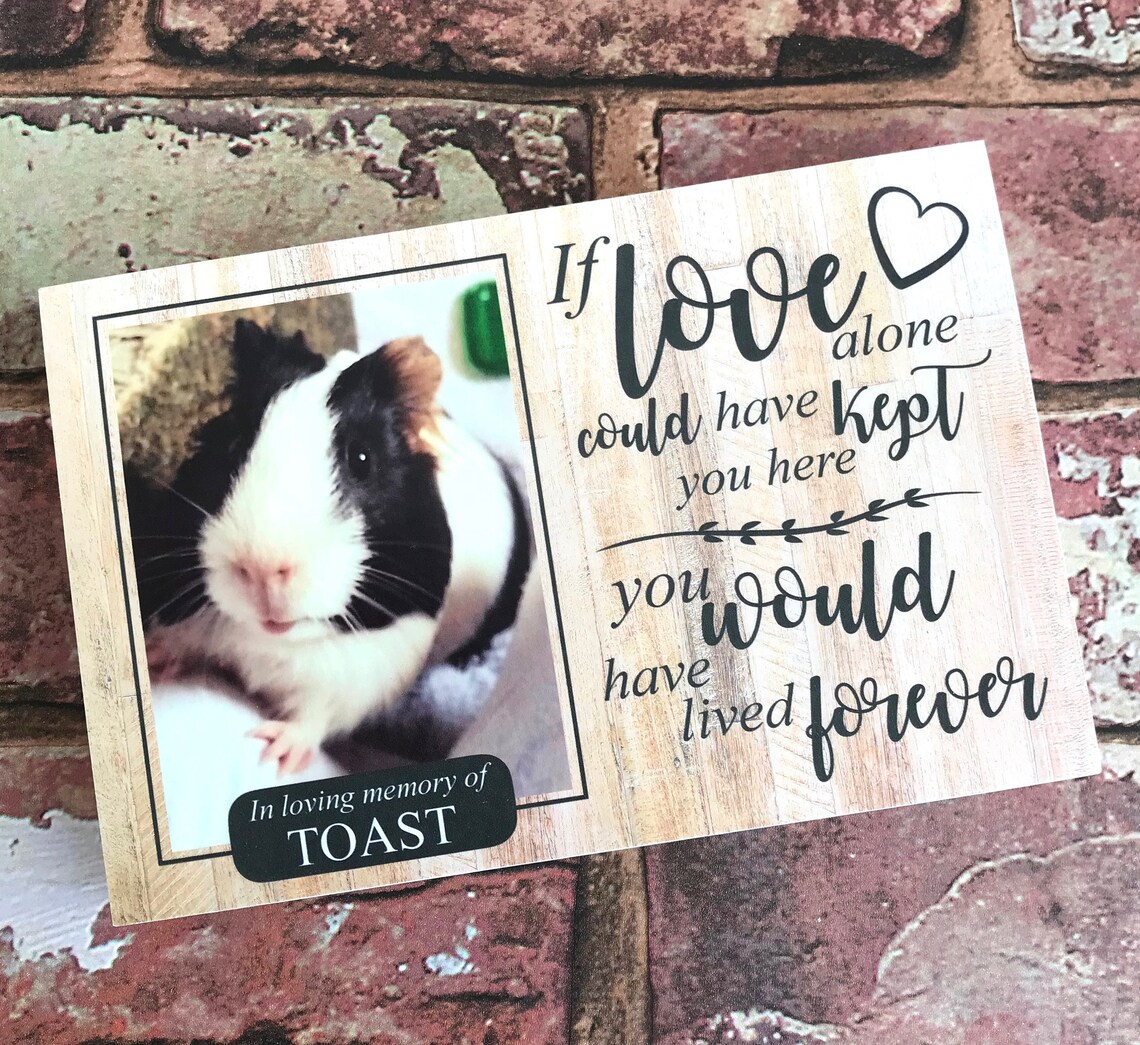 If love
alone
could have kept
you here
you would
have
lived forever
In loving memory of
TOAST